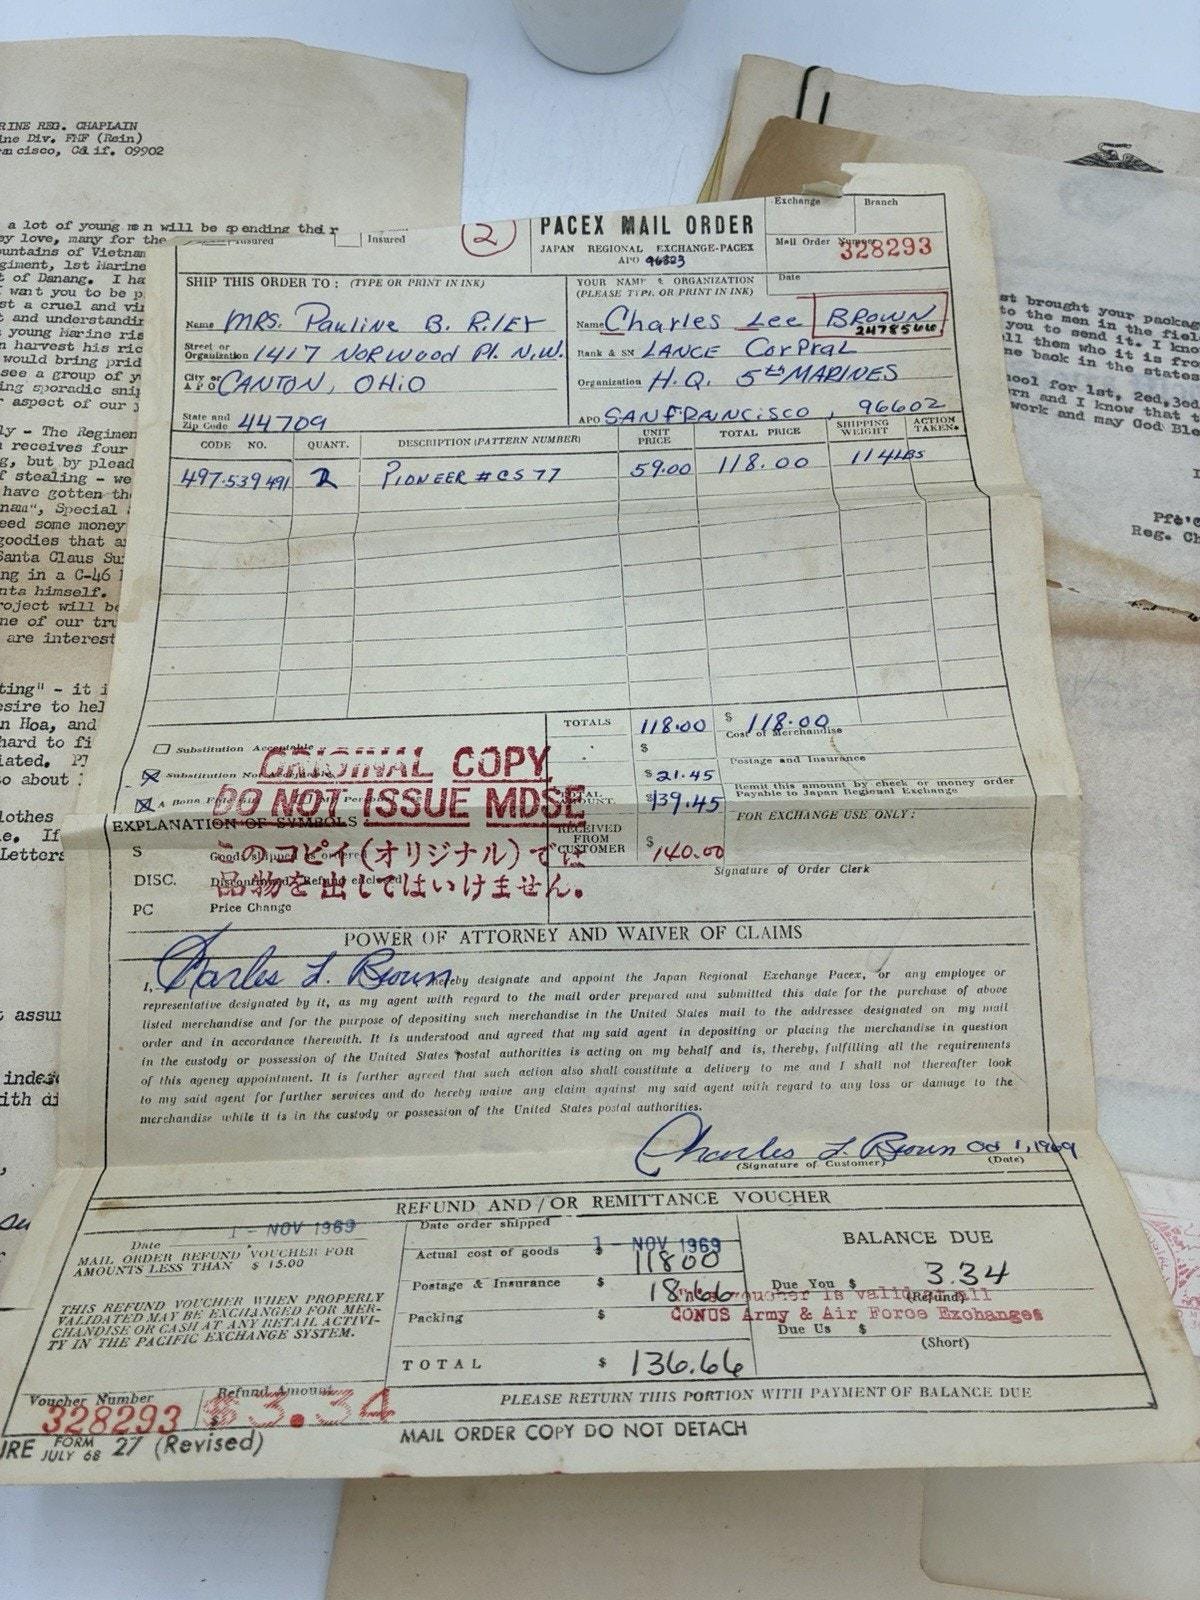 RINE REG. CHAPLAIN
ine Div. FMF (Rein)
ancisco, Calif. 09902
a lot of young men will be spending their
ey love, many for the
ountains of Vietnam
giment, 1st Marine
t of Danang. I ha
I want you to be p
st a cruel and vi
t and understandin
young Marine ris
n harvest his ric
would bring prid
see a group of y
ing sporadic snip
r aspect of our
ly - The Regimen
n receives four
g, but by plead
f stealing - we
have gotten the
nam", Special
eed some money
goodies that a
Santa Claus Su
ng in a C-46
nta himself.
roject will be
ne of our tru
are interest
ting" - it i
esire to hel
n Hoa, and
hard to fi
iated. Pl
to about
lothes
e. If
Letters
t assu
index
ith di
Insured
Insured
2
PACEX MAIL ORDER
JAPAN REGIONAL EXCHANGE-PACEX
APO 96323
Exchange
Branch
Mail Order Number
328293
Date
SHIP THIS ORDER TO: (TYPE OR PRINT IN INK)
YOUR NAME & ORGANIZATION
(PLEASE TYPE OR PRINT IN INK)
Name MRS. Pauline B. RILEY
Name Charles Lee BROWN
2478566
Street or Organization 1417 NORWOOD Pl. N.W.
Rank & SN LANCE CorPral
City or APO CANTON, OHiO
Organization H.Q. 5th MARINES
State and Zip Code 44709
APO SANFRANCISCO, 96602
CODE NO.
QUANT.
DESCRIPTION (PATTERN NUMBER)
UNIT PRICE
TOTAL PRICE
SHIPPING WEIGHT
ACTION TAKEN*
497-539 491
2
PIONEER # CS 77
59.00
118.00
114LBS
TOTALS
118.00
$ 118.00
Cost of Merchandise
Substitution Acceptable
$
Postage and Insurance
Substitution Not Acceptable
$ 21.45
Remit this amount by check or money order
Payable to Japan Regional Exchange
A Bona Fide
TOTAL AMOUNT.
$ 139.45
ORIGINAL COPY
DO NOT ISSUE MDSE
このコピイ(オリジナル)では
品物を出してはいけません。
EXPLANATION OF SYMBOLS
S Goods shipped as ordered
DISC. Discontinued, Refund enclosed
PC Price Change
RECEIVED FROM CUSTOMER
$ 140.00
FOR EXCHANGE USE ONLY:
Signature of Order Clerk
POWER OF ATTORNEY AND WAIVER OF CLAIMS
I, Charles L. Brown hereby designate and appoint the Japan Regional Exchange Pacex, or any employee or
representative designated by it, as my agent with regard to the mail order prepared and submitted this date for the purchase of above
listed merchandise and for the purpose of depositing such merchandise in the United States mail to the addressee designated on my mail
order and in accordance therewith. It is understood and agreed that my said agent in depositing or placing the merchandise in question
in the custody or possession of the United States postal authorities is acting on my behalf and is, thereby, fulfilling all the requirements
of this agency appointment. It is further agreed that such action also shall constitute a delivery to me and I shall not thereafter look
to my said agent for further services and do hereby waive any claim against my said agent with regard to any loss or damage to the
merchandise while it is in the custody or possession of the United States postal authorities.
Charles L. Brown Oct 1, 1969
(Signature of Customer)
(Date)
REFUND AND/OR REMITTANCE VOUCHER
1 - NOV 1969
Date
MAIL ORDER REFUND VOUCHER FOR
AMOUNTS LESS THAN $ 15.00
THIS REFUND VOUCHER WHEN PROPERLY
VALIDATED MAY BE EXCHANGED FOR MER-
CHANDISE OR CASH AT ANY RETAIL ACTIVI-
TY IN THE PACIFIC EXCHANGE SYSTEM.
Date order shipped
1 - NOV 1969
Actual cost of goods $ 11800
Postage & Insurance $ 18.66
Packing $
TOTAL $ 136.66
BALANCE DUE
Due You $ 3.34
(Refund)
This voucher is valid all
CONUS Army & Air Force Exchanges
Due Us $
(Short)
Voucher Number
328293
Refund Amount
$3.34
PLEASE RETURN THIS PORTION WITH PAYMENT OF BALANCE DUE
JRE FORM JULY 68 27 (Revised)
MAIL ORDER COPY DO NOT DETACH
st brought your package
to the men in the field
you to send it. I know
ll them who it is fro
ne back in the states
hool for 1st, 2ed, 3ed
rn and I know that t
work and may God Bl
Reg. Ch